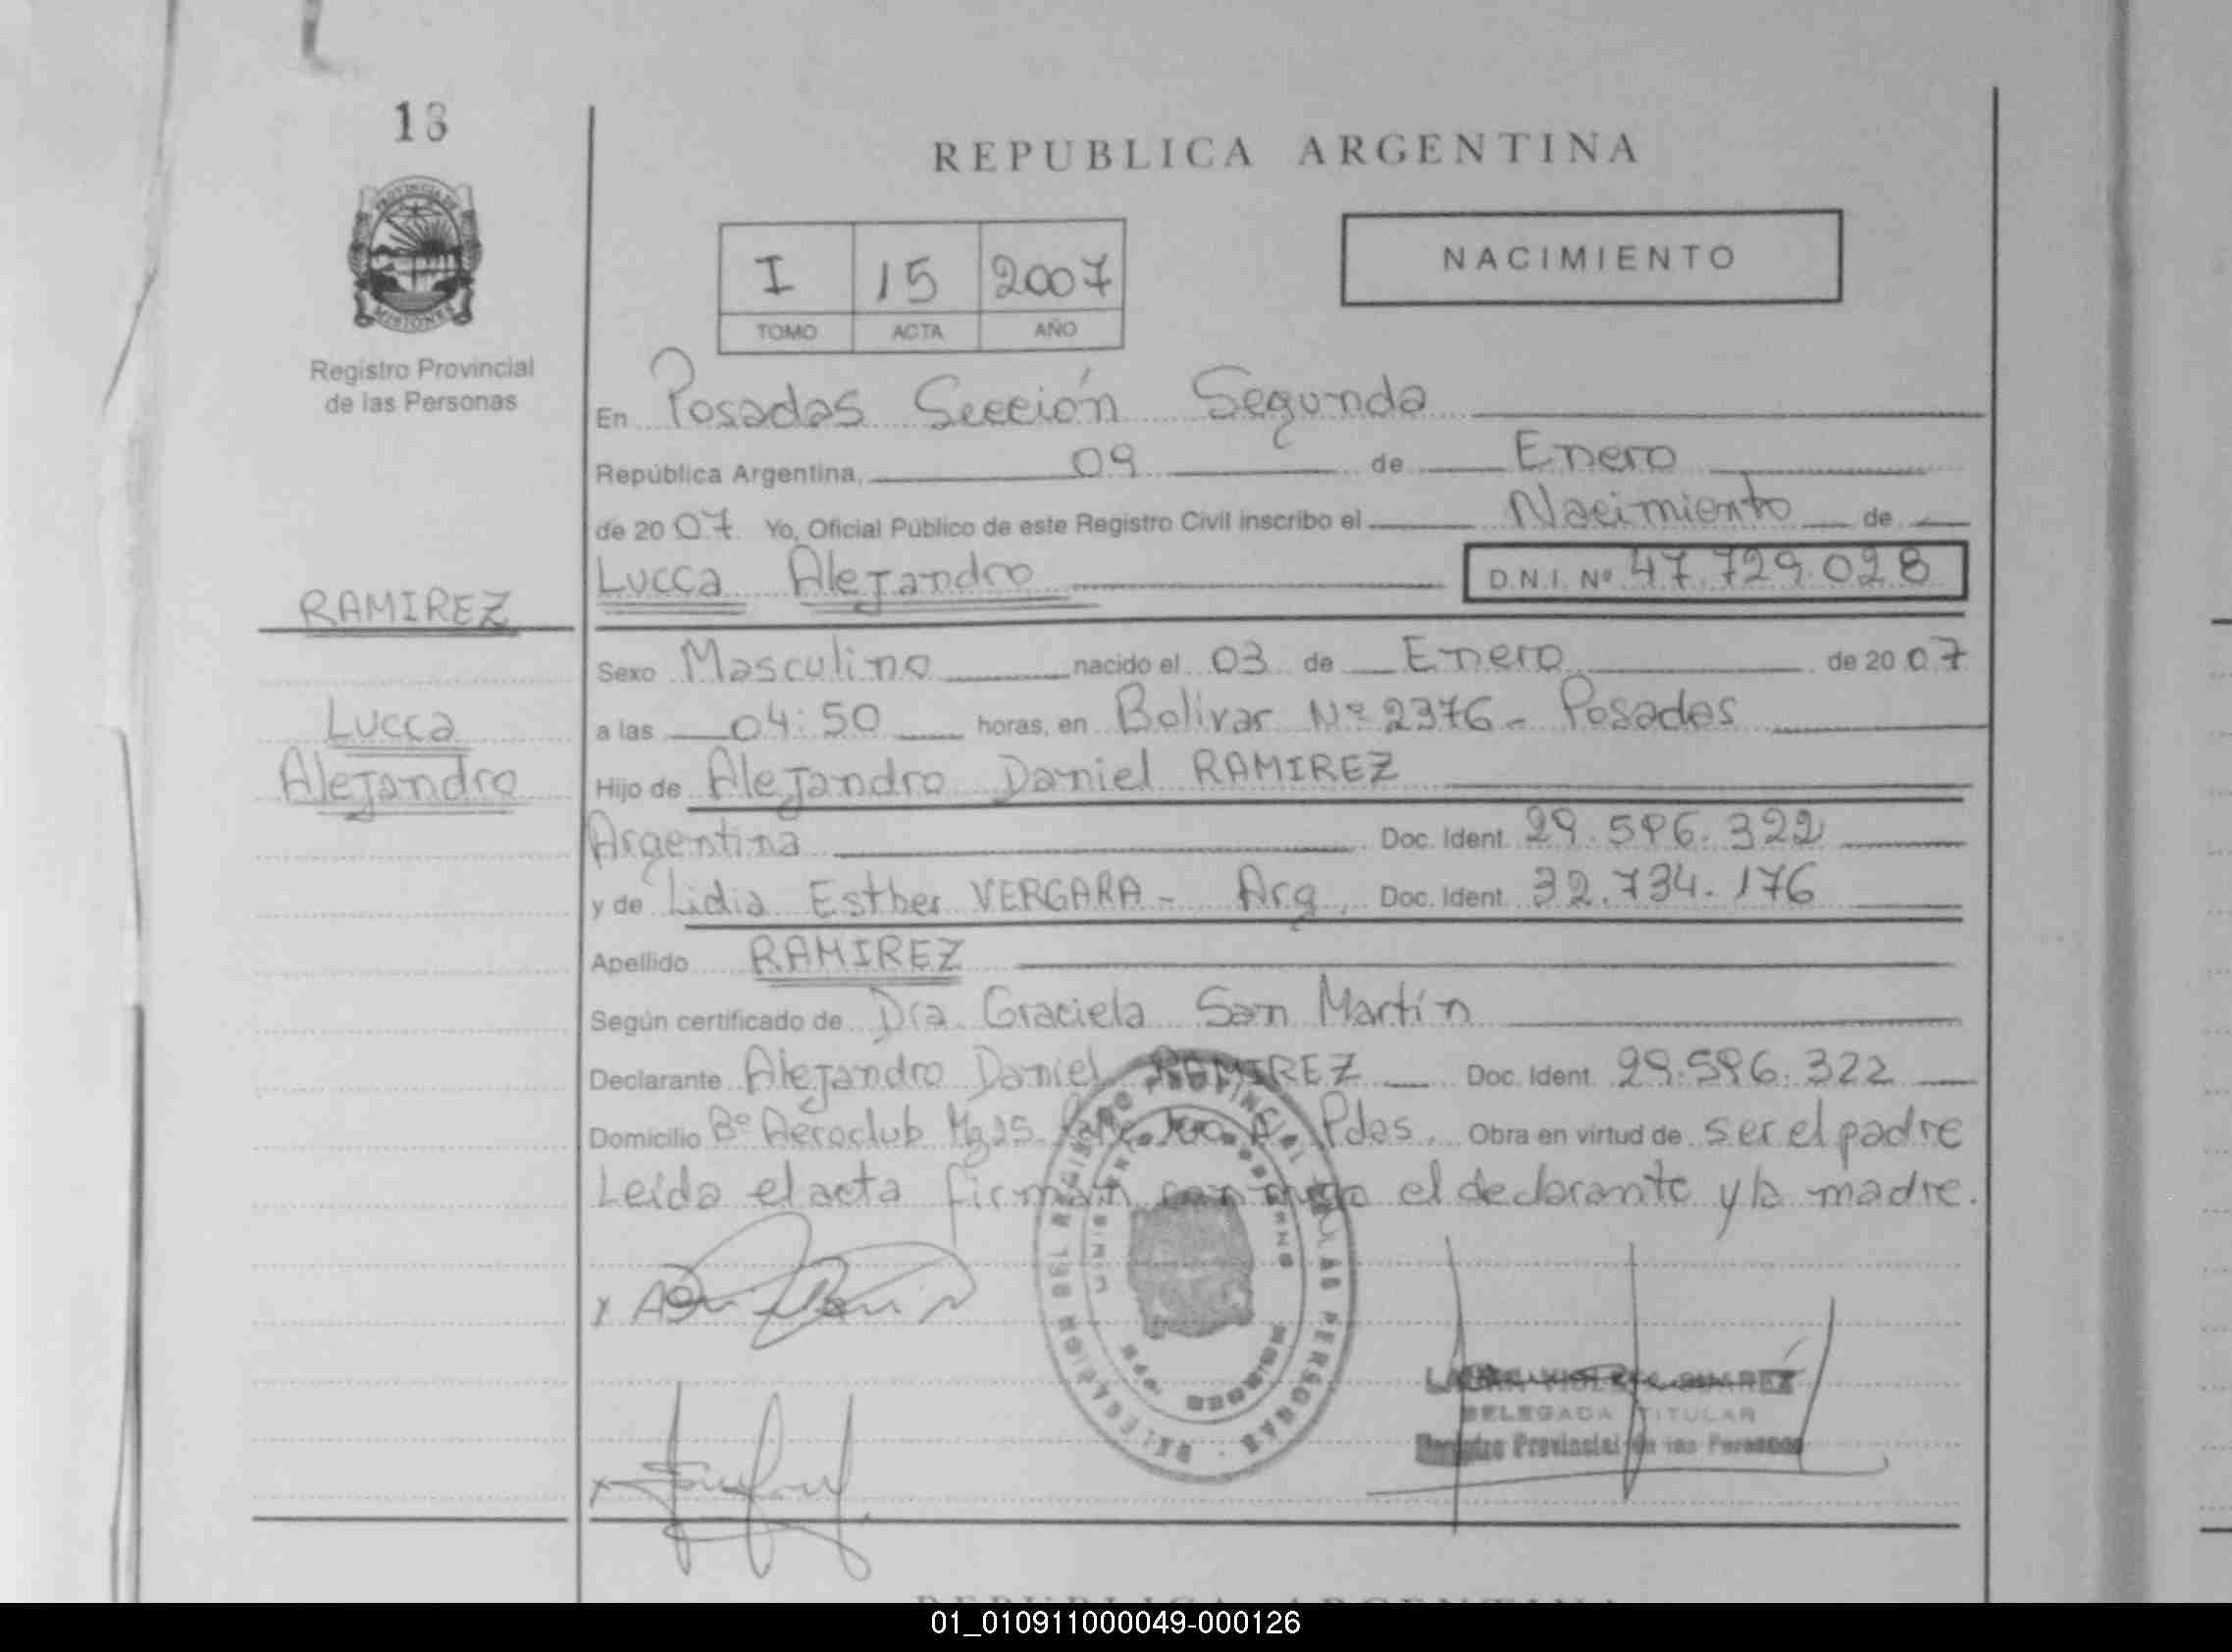 13
REPUBLICA ARGENTINA
PROVINCIA DE
MISIONES
Registro Provincial
de las Personas
I 15 2007
TOMO ACTA AÑO
NACIMIENTO
En Posadas Sección Segunda
República Argentina, 09 de Enero
de 2007 Yo, Oficial Público de este Registro Civil inscribo el Nacimiento de
Lucca Alejandro D.N.I. Nº 47.729.028
RAMIREZ
Sexo Masculino nacido el 03 de Enero de 2007
Lucca
a las 04:50 horas, en Bolivar Nº 2376 - Posadas
Alejandro
Hijo de Alejandro Daniel RAMIREZ
Argentina Doc. Ident. 29.596.322
y de Lidia Esther VERGARA - Arg. Doc. Ident. 32.734.176
Apellido RAMIREZ
Según certificado de Dra. Graciela San Martín
Declarante Alejandro Daniel RAMIREZ Doc. Ident. 29.596.322
Domicilio Bº Aeroclub Pdas. Obra en virtud de ser el padre
Leída el acta firman conmigo el declarante y la madre.
REGISTRO PROVINCIAL DE LAS PERSONAS
DELEGADA TITULAR
Registro Provincial de las Personas
REPUBLICA ARGENTINA
01_010911000049-000126